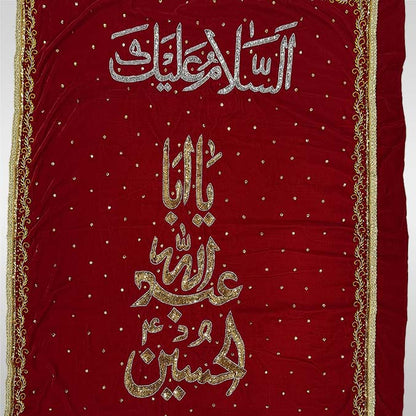 السلام عليك
يا ابا
عبد الله
الحسين